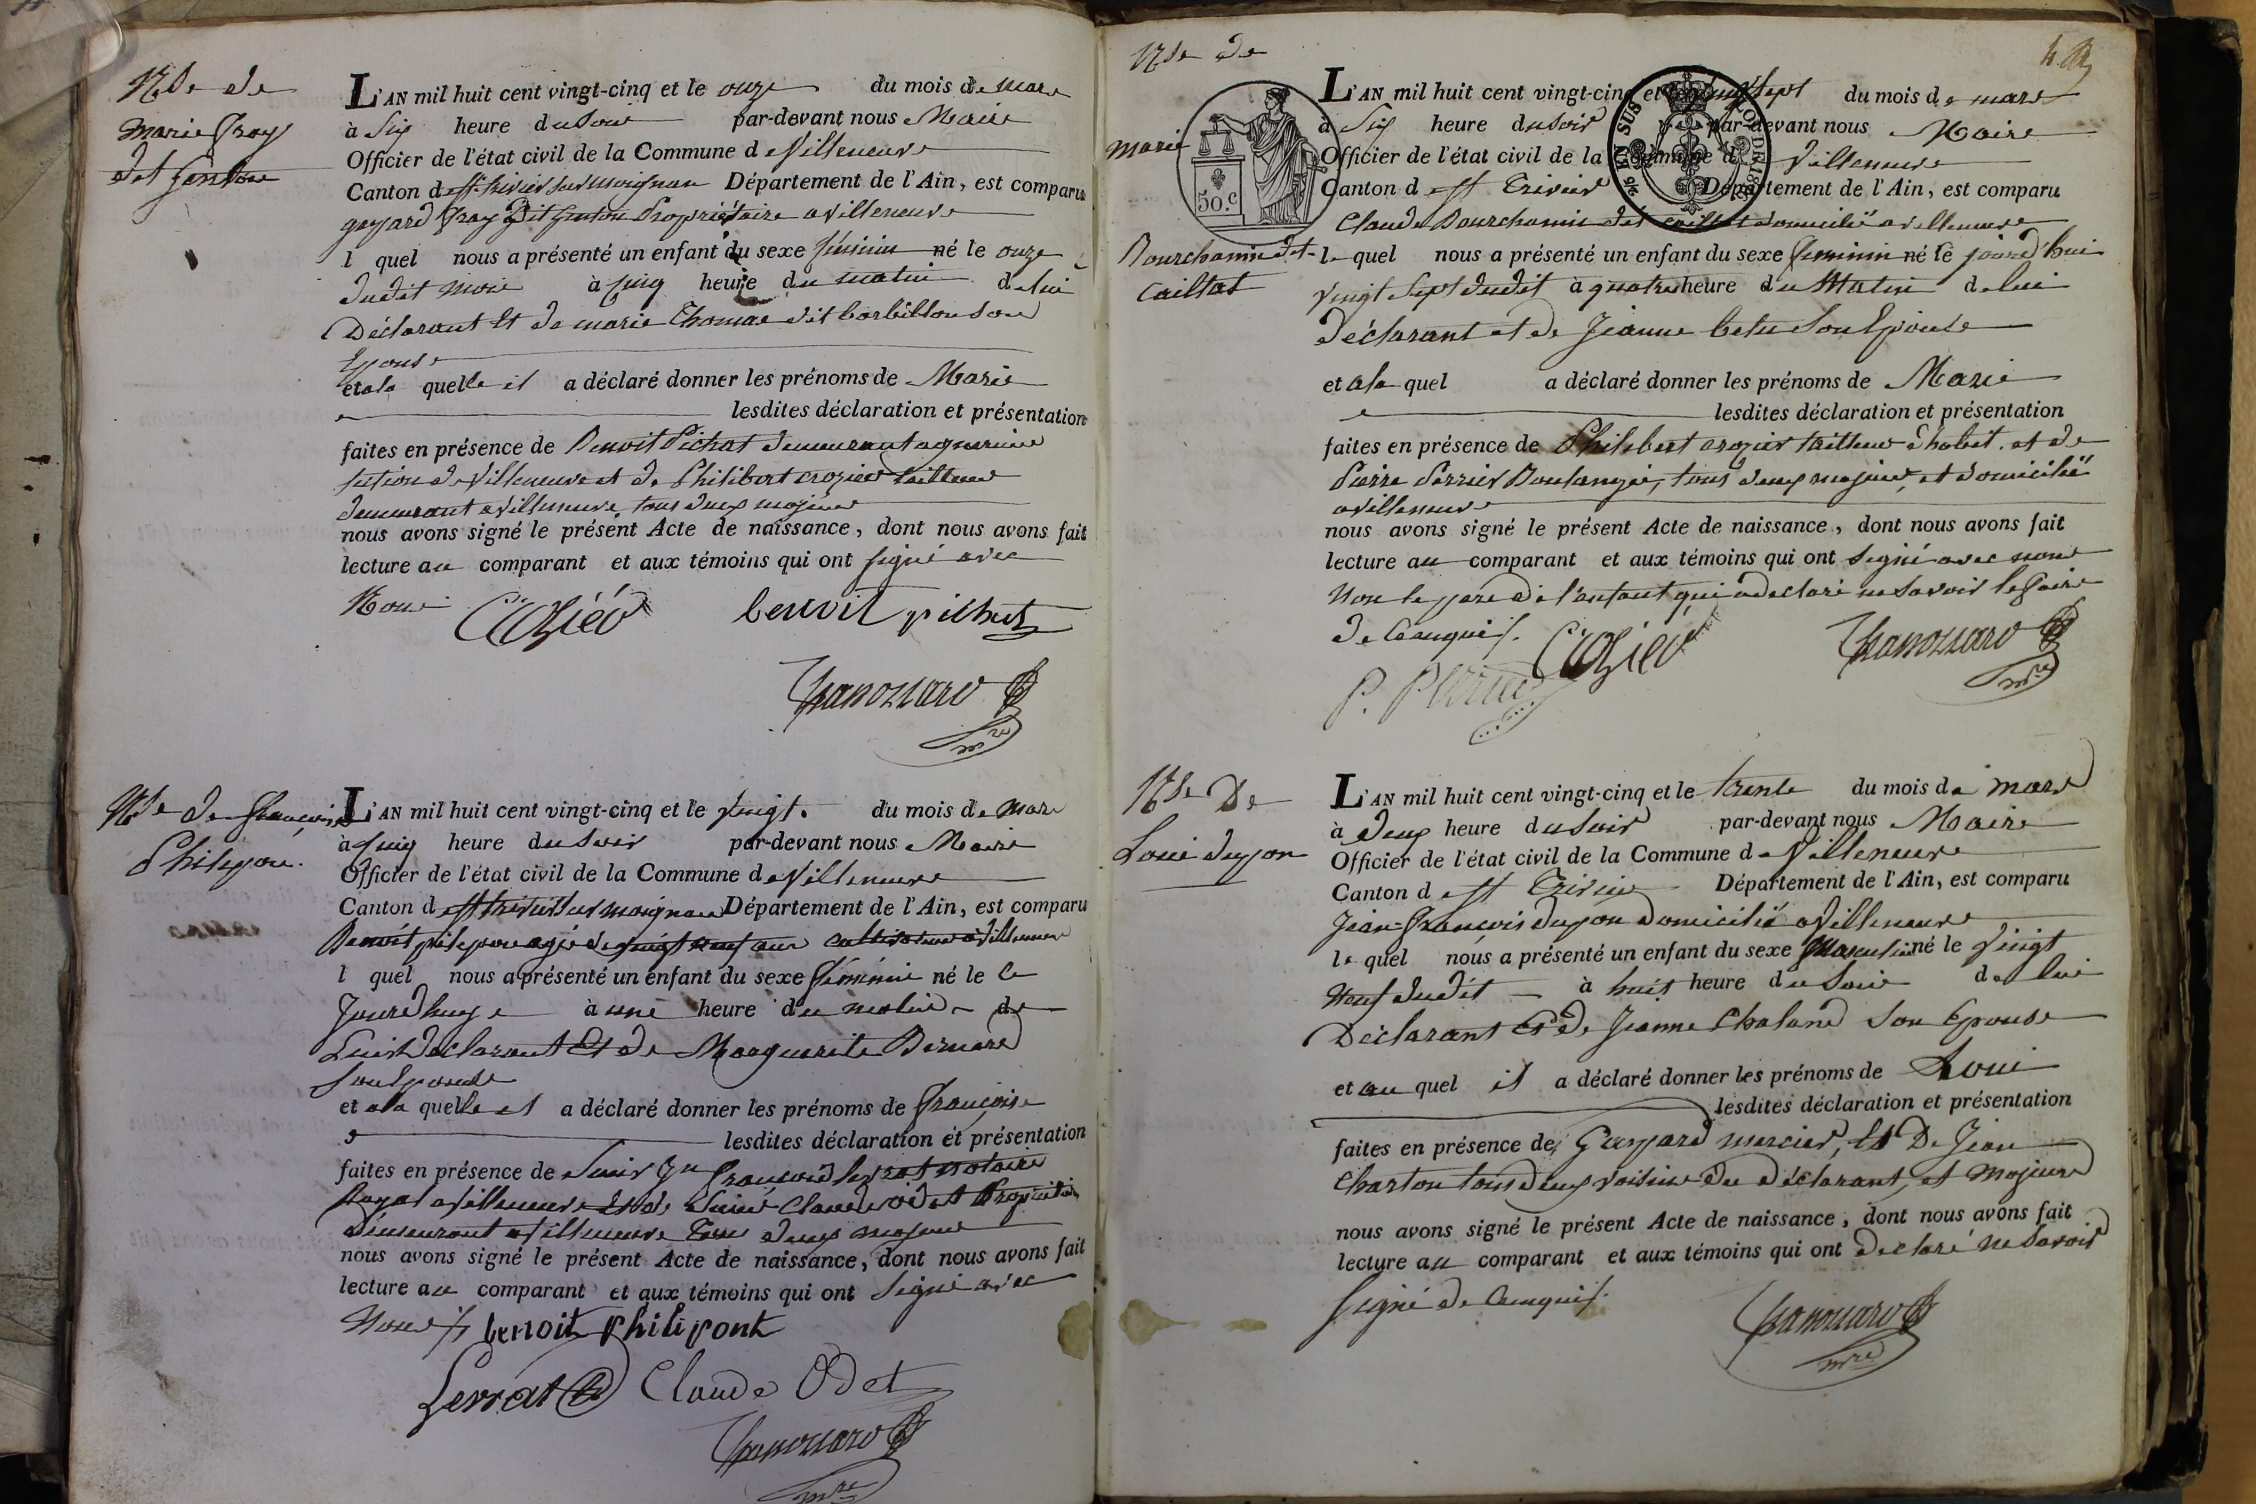 Nce de
Marie Fray
dit Genton
L'AN mil huit cent vingt-cinq et le onze du mois de mars
à Six heure du soir par-devant nous Maire
Officier de l'état civil de la Commune de Villeneuve
Canton de St trivier sur moignan Département de l'Ain, est comparu
gaspard Fray dit Genton Propriétaire a villeneuve
l quel nous a présenté un enfant du sexe féminin né le onze
dudit mois à cinq heure du matin de lui
Déclarant Et de marie Thomas dit barbillon son
Epouse
et a la quelle il a déclaré donner les prénoms de Marie
lesdites déclaration et présentation
faites en présence de Benoit Pichat demeurant a
section de Villeneuve et de Philibert crozier tailleur
demeurant a villeneuve tous deux majeurs
nous avons signé le présent Acte de naissance, dont nous avons fait
lecture au comparant et aux témoins qui ont signé avec
Nous
Crozier benoit pichat
mre
Nce de Françoise
Philipon.
L'AN mil huit cent vingt-cinq et le vingt. du mois de mars
à cinq heure du soir par-devant nous Maire
Officier de l'état civil de la Commune de Villeneuve
Canton de St trivier sur moignan Département de l'Ain, est comparu
Benoit philipon agé de vingt neuf ans cultivateur a villeneuve
l quel nous a présenté un enfant du sexe féminin né le ce
Jourd'huy à une heure du matin de
Luid déclarant Et de Marguerite Bernard
son Epouse
et a la quelle il a déclaré donner les prénoms de Françoise
lesdites déclaration et présentation
faites en présence de François levrat notaire
Royal a villeneuve Et de Claude odet Propriétaire
demeurant a villeneuve Tous deux majeurs
nous avons signé le présent Acte de naissance, dont nous avons fait
lecture au comparant et aux témoins qui ont signé avec
Nous benoit philipont
Levrat Claude Odet
mre
Nce de
Marie
Bourchanin dit
Caillat
50.c
EN SUS
L'AN mil huit cent vingt-cinq et le vingt sept du mois de mars
à Six heure du soir par-devant nous Maire
Officier de l'état civil de la Commune de Villeneuve
Canton de St Trivier Département de l'Ain, est comparu
Claude Bourchanin dit caillat domicilié a villeneuve
le quel nous a présenté un enfant du sexe féminin né le jourd'hui
vingt Sept dudit à quatre heure du Matin de lui
déclarant et de Jeanne betu Son Epouse
et a la quel a déclaré donner les prénoms de Marie
lesdites déclaration et présentation
faites en présence de Philibert crozier tailleur d'habit. et de
Pierre Perrier Boulanger, tous deux majeurs, et domicilié
a villeneuve
nous avons signé le présent Acte de naissance, dont nous avons fait
lecture au comparant et aux témoins qui ont signé avec nous
Non le père de l'enfant qui a déclaré ne savoir le faire
de ce enquis.
P. Perrier Crozier
mre
Nce De
Loui dupon
L'AN mil huit cent vingt-cinq et le trente du mois de mars
à deux heure du soir par-devant nous Maire
Officier de l'état civil de la Commune de Villeneuve
Canton de St Trivier Département de l'Ain, est comparu
Jean-François dupon domicilié a Villeneuve
le quel nous a présenté un enfant du sexe Masculin né le vingt
Neuf dudit à huit heure du Soir de lui
Déclarant Et de Jeanne Chaland Son Epouse
et au quel il a déclaré donner les prénoms de Loui
lesdites déclaration et présentation
faites en présence de Gaspard mercier, Et De Jean
Charton tous deux voisins du déclarant, et Majeurs
nous avons signé le présent Acte de naissance, dont nous avons fait
lecture au comparant et aux témoins qui ont declaré ne savoir
signé de ce enquis.
mre